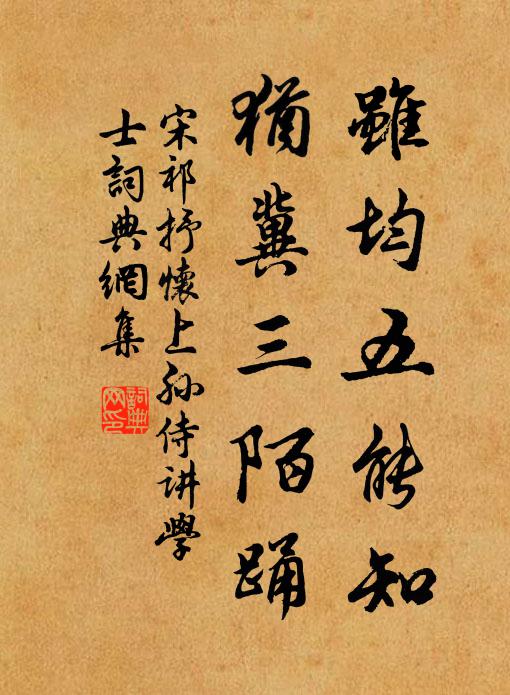 雖均五能知
猶冀三陌踊
宋祁抒懷上孙侍讲學
士詞典網集
詞典
网印